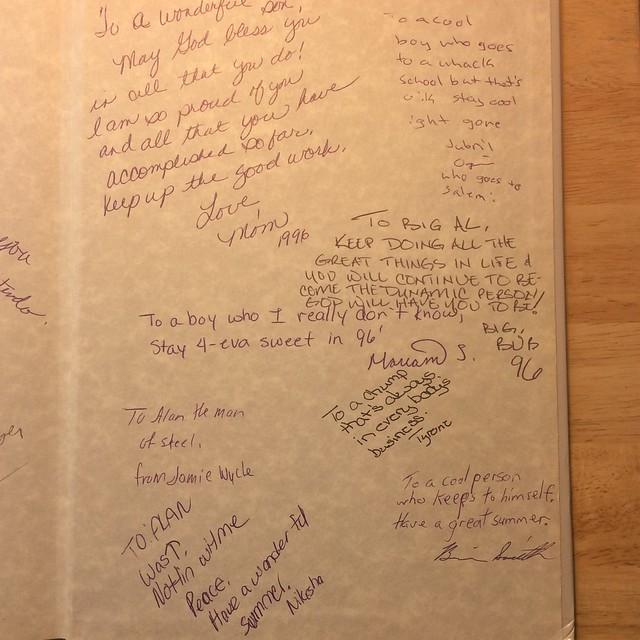 To a wonderful son,
May God bless you
in all that you do!
I am so proud of you
and all that you have
accomplished so far.
Keep up the good work.
Love
Mom
1996
To a cool
boy who goes
to a whack
school but that's
stay cool
ight gone
Jubril
who goes to
Salem!
TO BIG AL,
KEEP DOING ALL THE
GREAT THINGS IN LIFE &
YOU WILL CONTINUE TO BE-
COME THE DYNAMIC PERSON
GOD WILL HAVE YOU TO BE!
BIG
BUB
96
To a boy who I really don't know,
Stay 4-eva sweet in 96'
Mariam S.
To a chump
that's always
in everybodys
business.
Tyrone
To Alan the man
of steel,
from Jamie Wycle
To a cool person
who keeps to himself.
Have a great summer.
Brian Smith
TO: ALAN
Was?,
Notin wit me
Peace.
Have a wonderful
summer.
Nikesha
you